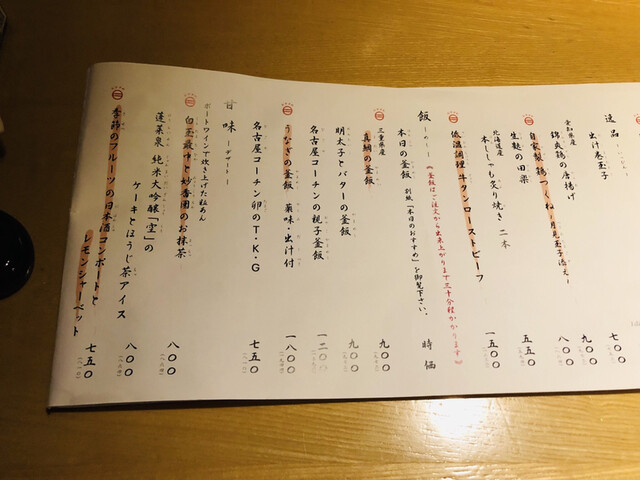 逸品
出汁巻玉子
七〇〇
愛知県産
錦爽鶏の唐揚げ
八〇〇
自家製 鶏つくね 月見玉子添え
生麩の田楽
五五〇
北海道産
本ししゃも炙り焼き 二本
低温調理 牛タンローストビーフ
一五〇〇
飯
《釜飯はご注文から出来上がりまで三十分程かかります》
本日の釜飯 別紙「本日のおすすめ」を御覧下さい。
時価
三重県産
真鯛の釜飯
九〇〇
明太子とバターの釜飯
九〇〇
名古屋コーチンの親子釜飯
一二〇〇
うなぎの釜飯 薬味・出汁付
一八〇〇
名古屋コーチン卵のT・K・G
七五〇
甘味 ーデザートー
ポートワインで炊き上げた粒あん
白玉最中と妙香園のお抹茶
八〇〇
蓬莱泉 純米大吟醸「空」の
ケーキとほうじ茶アイス
八〇〇
季節のフルーツの日本酒コンポートと
レモンシャーベット
七五〇